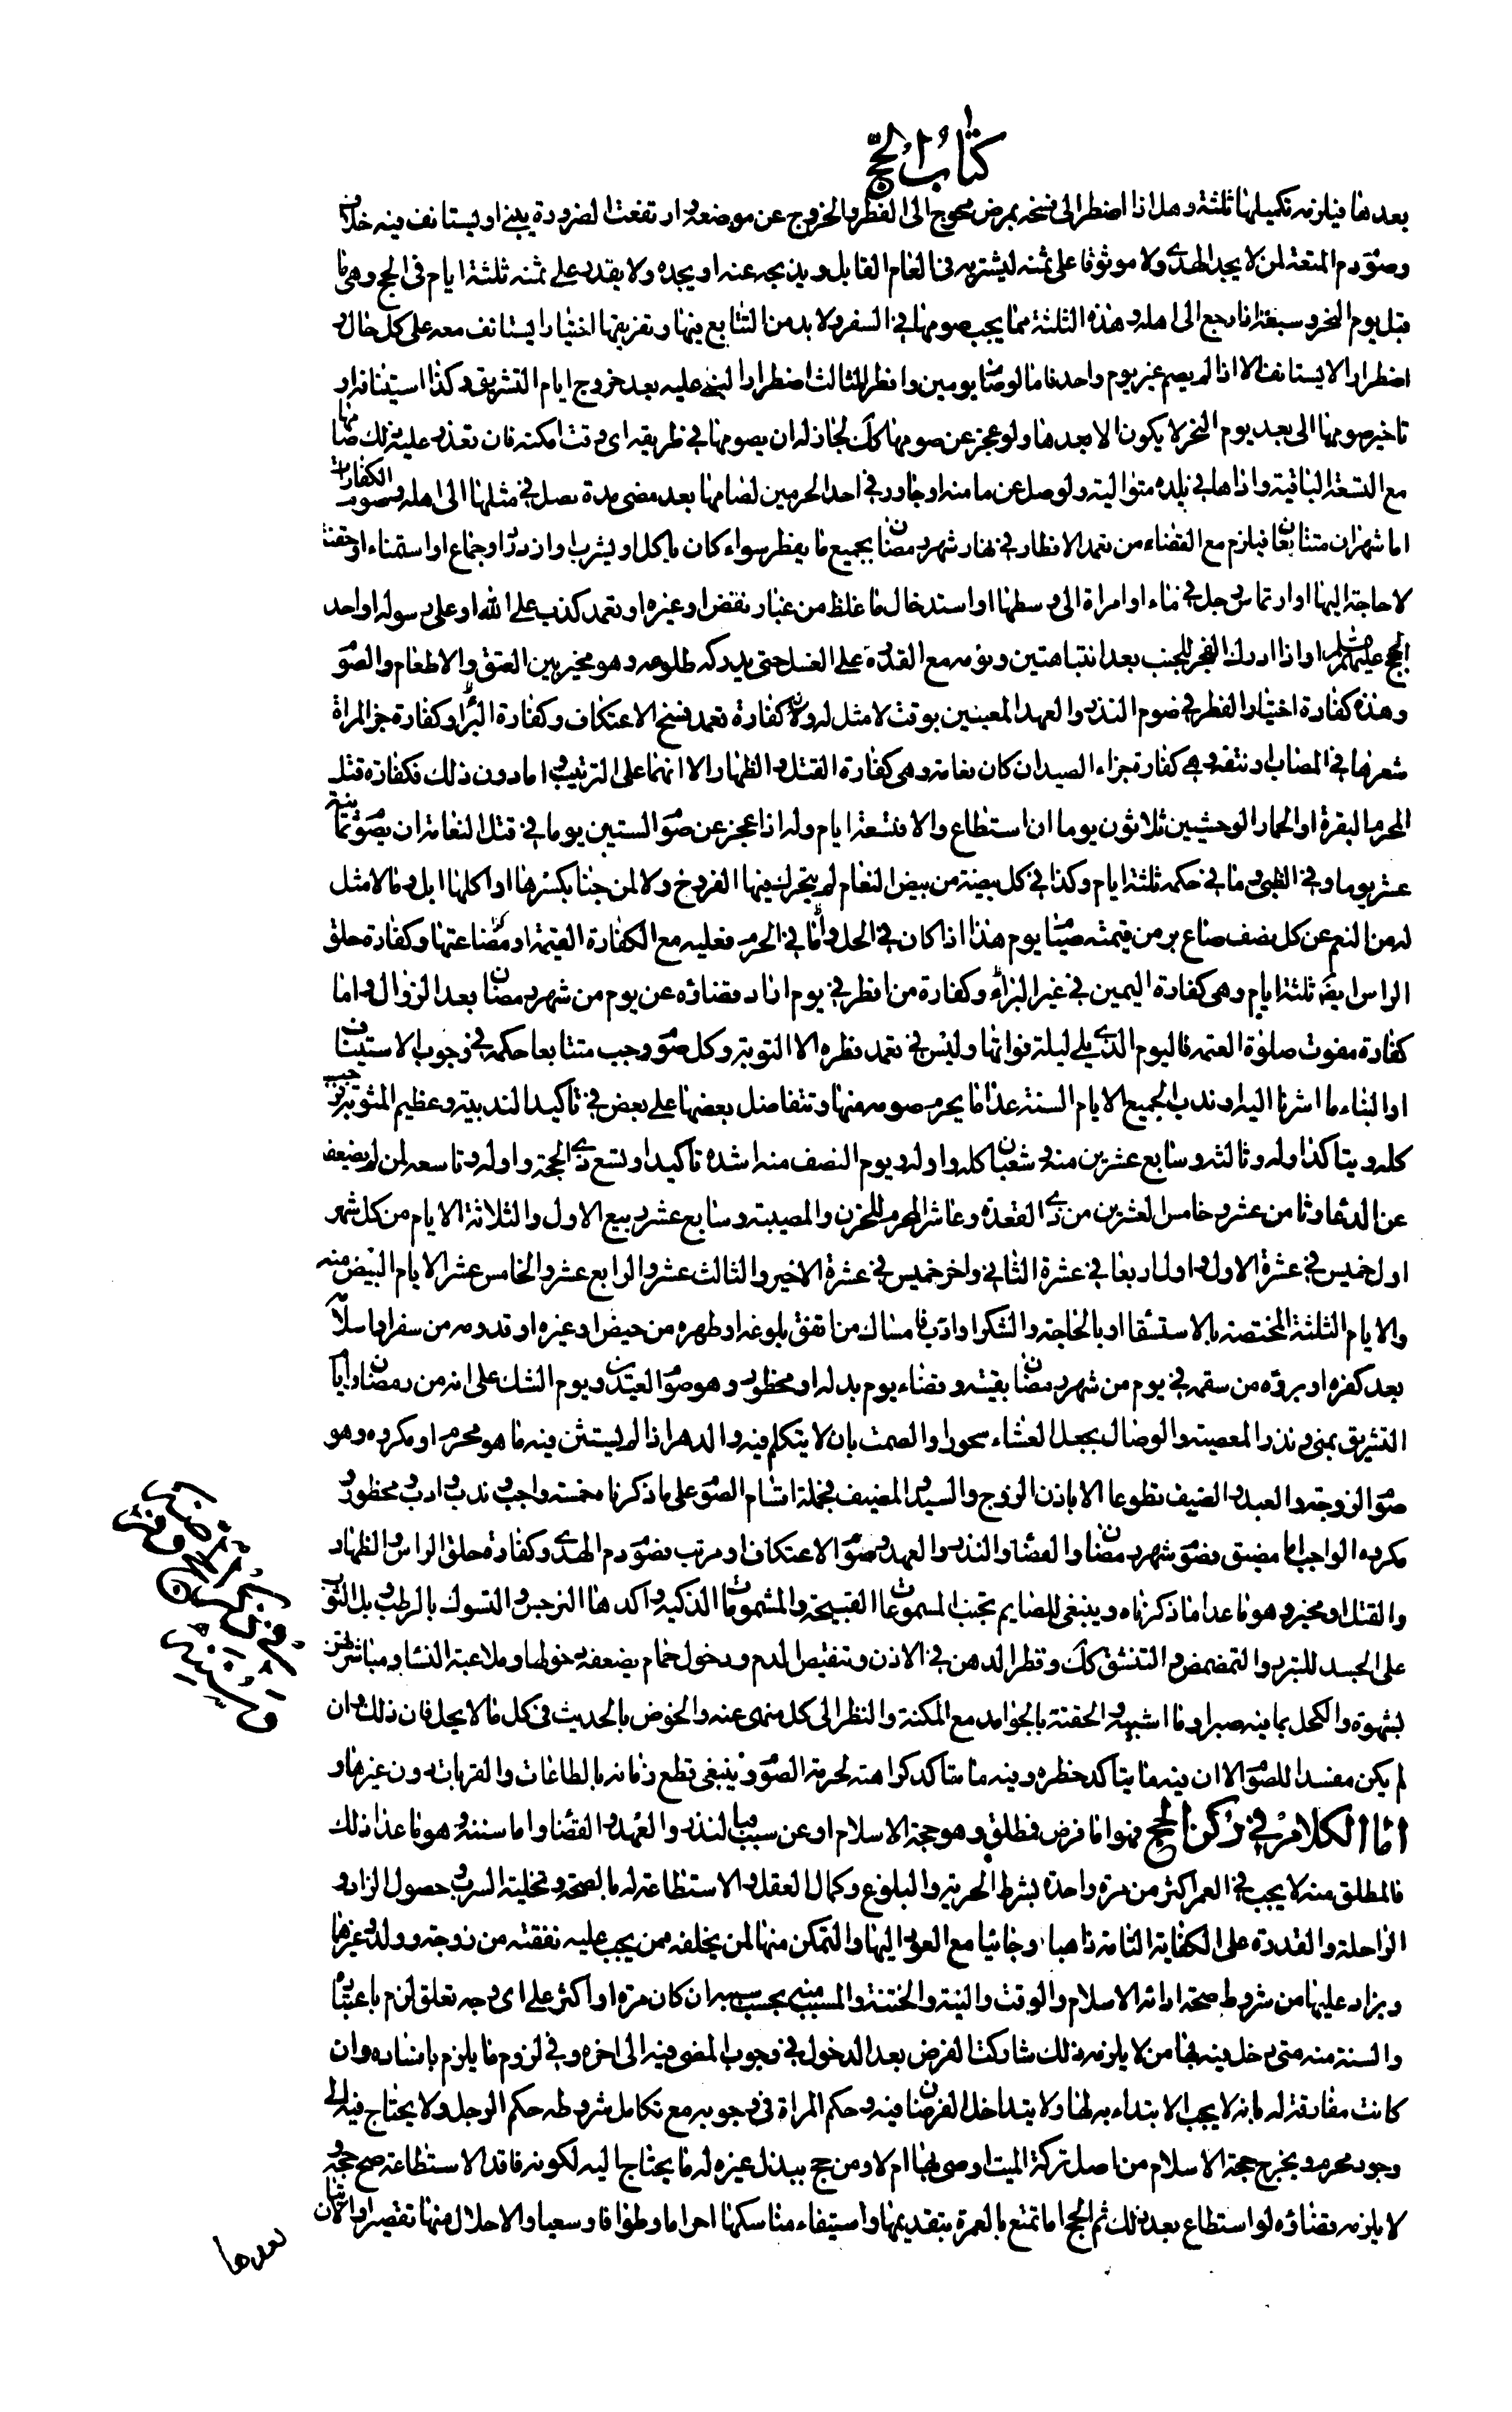 كتاب الحج
بعدها فيلزمه تكميلها ثلثة وهل اذا اضطر الى فسخه بمرض محوج الى الفطر والخروج عن موضعه وارتفعت الضرورة يبني او يستانف فيه خلاف
وصوم دم المتعة لمن لا يجد الهدى ولا موثوقا على ثمنه ليشتريه في العام القابل ويذبحه عنه او يجده ولا يقدر على ثمنه ثلثة ايام في الحج وهى ما
قبل يوم النحر وسبعة اذا رجع الى اهله وهذه الثلثة مما يجب صومها في السفر ولا بد من التتابع بينها وتفريقها اختيارا يستانف معه على كل حال و
اضطرارا لا يستانف الا اذا لم يصم غير يوم واحد فاما لو صام يومين وافطر الثالث اضطرارا لبنى عليه بعد خروج ايام التشريق وكذا استينافها و
تاخير صومها الى بعد يوم النحر لا يكون الا بعدها ولو عجز عن صومها كك لجاز له ان يصومها في طريقه اى وقت امكنه فان تعذر عليه ذلك صامها
مع السبعة الباقية واذاها في بلده متوالية ولو صل عن ما منه او جاور في احد الحرمين لصامها بعد مضى مدة يصل في مثلها الى اهله وصوم الكفارات
اما شهران متتابعان فيلزم مع القضاء من تعمد الافطار في نهار شهر رمضان بجميع ما يفطر سواء كان باكل او شرب او ازدراد او جماع او استمناء او حقنة
لا حاجة اليها او ارتماس رجل في ماء او امراة الى وسطها او استدخال ما غلظ من غبار نفض او غيره او تعمد كذب على الله او على رسوله او احد
الحجج عليهم السلم او اذا ادرك الفجر للجنب بعد انتباهتين ونومه مع القدرة على الغسل حتى يدركه طلوعه وهو مخير بين العتق والاطعام والصوم
وهذه كفارة اختيار الفطر في صوم النذر والعهد المعينين بوقت لا مثل له ولان كفارة تعمد فسخ الاعتكاف وكفارة البراء وكفارة جز المراة
شعرها في المصاب او نتفه وهى كفارة جزاء الصيد ان كان نعامة وهى كفارة القتل والظهار الا انهما على الترتيب واما دون ذلك فكفارة قتل
المحرم البقرة او الحمار الوحشيين ثلاثون يوما ان استطاع والا فتسعة ايام وله اذا عجز عن صوم الستين يوما في قتل النعامة ان يصوم ثمانية
عشر يوما وفي الظبى وما في حكمه ثلثة ايام وكذا في كل بيضة من بيض النعام لم يتحرك فيها الفروخ ولا لمن جنا بكسرها او اكلها ابل وما لا مثل
له من النعم عن كل نصف صاع بر من قيمته صيام يوم هذا اذا كان في الحل واما في الحرم فعليه مع الكفارة القيمة او مضاعفتها وكفارة حلق
الراس ايضه ثلثة ايام وهى كفارة اليمين في غير البراء وكفارة من افطر في يوم اراد قضاؤه عن يوم من شهر رمضان بعد الزوال واما
كفارة مفوت صلوة العتمه فاليوم الذى يلى ليلة فواتها وليس في تعمد فطره الا التوبة وكل صوم وجب متتابعا حكمه في وجوب الاستيناف
او البناء ما اشرنا اليه او ندب لجميع الايام السنة عدا ما يحرم صومه منها وتتفاضل بعضها على بعض في تاكيد الندبية وعظيم المثوبة فرجب
كله ويتاكد اوله وثالثه وسابع عشرين منه وشعبان كله واوله ويوم النصف منه اشده تاكيدا وتسع ذى الحجة واوله وتاسعه لمن لم يضعف
عن الدعا وثامن عشره وخامس العشرين من ذى القعدة وعاشر المحرم للحزن والمصيبة وسابع عشر ربيع الاول والثلاثة الايام من كل شهر
اول خميس في عشرة الاول واول اربعا في عشرة الثاني واخر خميس في عشرة الاخير والثالث عشر والرابع عشر والخامس عشر الايام البيض منه
والايام الثلثة المختصة بالاستسقا او بالحاجة والشكر او ادب فامساك من اتفق بلوغه او طهره من حيض او غيره او قدومه من سفر او اسلامه
بعد كفره او برؤه من سقمه في يوم من شهر رمضان بقيته وقضاء يوم بدله او محظور وهو صوم العيدين ويوم الشك على انه من رمضان وايام
التشريق بمنى ونذر المعصية والوصال بجعل العشاء سحورا والصمت بان لا يتكلم فيه والدهر اذا لم يستثن فيه ما هو محرم او مكروه وهو
صوم الزوجة والعبد والضيف تطوعا الا باذن الزوج والسيد والمضيف فجملة اقسام الصوم على ما ذكرنا خمسة واجب وندب وادب ومحظور و
مكروه الواجب اما مضيق فصوم شهر رمضان والقضا والنذر والعهد وصوم الاعتكاف او مرتب فصوم دم الهدى وكفارة حلق الراس والظهار
والقتل او مخير وهو ما عدا ما ذكرناه وينبغى للصايم تجنب المسموعات القبيحة والمشمومات الذكية واكدها النرجس والتسوك بالرطب وبل الثوب
على الجسد للتبرد والتمضمض والتنشق كك وقطر الدهن في الاذن وتنقيص الدم ودخول حمام يضعفه دخولها وملاعبة النساء ومباشرتهن
بشهوة والكحل بما فيه صبر او ما اشبهه والحقنة بالجوامد مع المكنة والنظر الى كل منهى عنه والخوض بالحديث في كل ما لا يحل فان ذلك وان
لم يكن مفسدا للصوم الا ان فيه ما يتاكد حظره وفيه ما يتاكد كراهته لحرمة الصوم وينبغى قطع زمانه بالطاعات والقربات دون غيرها و
اما الكلام في ركن الحج فهو اما فرض فمطلق وهو حجة الاسلام او عن سبب بالنذر والعهد والقضا واما سنة وهو ما عدا ذلك
فالمطلق منه لا يجب في العمر اكثر من مرة واحدة بشرط الحرية والبلوغ وكمال العقل والاستطاعة له بالصحة وتخلية السرب وحصول الزاد و
الراحلة والقدرة على الكفاية التامة ذاهبا وجائيا مع العود اليها والتمكن منها لمن يخلفه ممن يجب عليه نفقته من زوجة وولد وغيرها
ويزاد عليها من شروط صحة ادائه الاسلام والوقت والنية والختنة والمسبب منه بحسب سببه ان كان مرة او اكثر على اى وجه تعلق لزم باعتباره
والسنة منه متى دخل فيه بها من لا يلزمه ذلك شاركت الفرض بعد الدخول في وجوب المضى فيه الى اخره وفي لزوم ما يلزم بافساده وان
كانت مفارقة له بانه لا يجب الابتداء به لها ولا يتداخل الفرضان فيه وحكم المراة في وجوبه مع تكامل شروطه حكم الرجل ولا يحتاج فيه الى
وجود محرم ويخرج حجة الاسلام من اصل تركة الميت اوصى بها ام لا ومن حج ببذل غيره له ما يحتاج اليه لكونه فاقد الاستطاعة صح حجه و
لا يلزمه قضاؤه لو استطاع بعد ذلك ثم الحج اما تمتع بالعمرة بتقديمها واستيفاء مناسكها احراما وطوافا وسعيا والاحلال منها تقصيرا والاتيان
بعدها